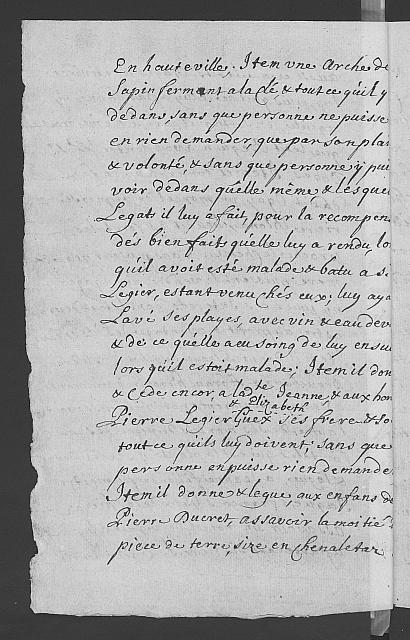 En hauteville. Item vne Arche de
Sapin fermant a la clé, & tout ce qu'il y
dedans, sans que personne ne puisse
en rien demander, que par son plai
& volonté, & sans que personne y pui
voir dedans qu'elle même, & lesque
Legats il luy a fait, pour la recompen
dés bien faits qu'elle luy a rendu, lo
qu'il avoit esté malade & batu a S.
Legier, estant venu chés eux; luy aya
Lavé ses playes, avec vin & eau de v
& de ce qu'elle a eu soing de luy ensu
lors qu'il estoit malade; Item il don
& Cede encor a lad.te Jeanne, & aux hon
& Elizabeth
Pierre Legier Guex ses frere & so
tout ce qu'ils luy doivent, sans que
personne en puisse rien demande
Item il donne & legue, aux enfans de
Pierre Ducret, assavoir la moitié
piece de terre, size en Chenaletaz